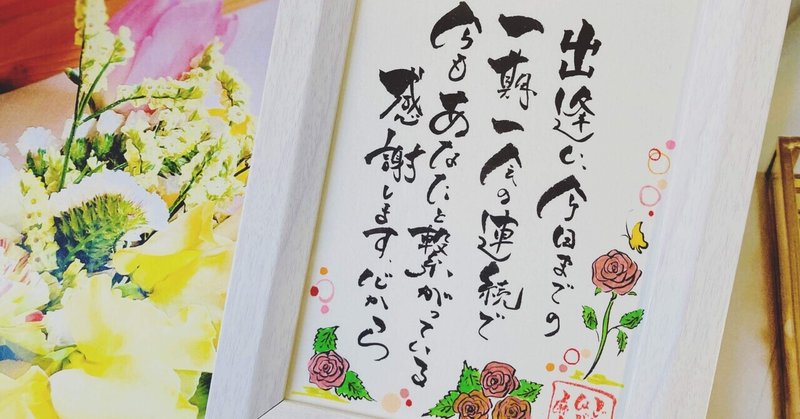 出逢い、今日までの
一期一会の連続で
今もあなたと繋がっている
感謝します、心から